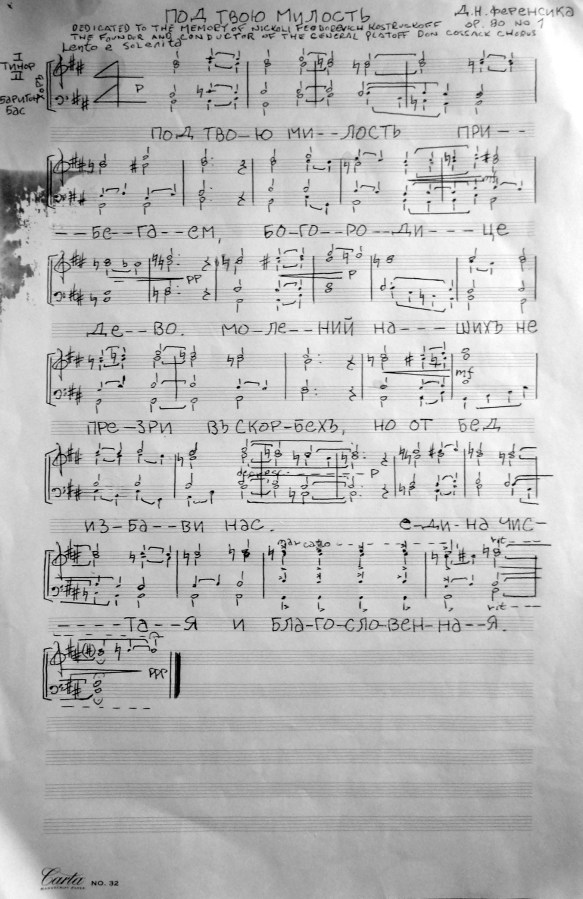 ПОД ТВОЮ МИЛОСТЬ
Д.Н. ФЕРЕНСИКА
OP. 80 NO 1
DEDICATED TO THE MEMORY OF NICKOLI FEODOREVICH KOSTRUKOFF
THE FOUNDUR AND CONDUCTOR OF THE GENERAL PLATOFF DON COSSACK CHORUS
Lento e Solenito
I
ТИНОР
II
БАРИТОН
БАС
P
ПОД ТВО--Ю МИ--ЛОСТЬ ПРИ--
mf
--БЕ--ГА--ЕМ, БО-ГО--РО--ДИ---ЦЕ
PP
P
ДЕ--ВО. МО-ЛЕ--НИЙ НА---ШИХЪ НЕ
mf
ПРЕ-ЗРИ ВЪ СКОР-БЕХЪ, НО ОТ БЕД
P
ИЗ-БА--ВИ НАС. Е-ДИ-НА ЧИС-
marcato
rit
rit
----ТА--Я И БЛА-ГО-СЛО-ВЕН-НА--Я.
PPP
Carta
NO. 32